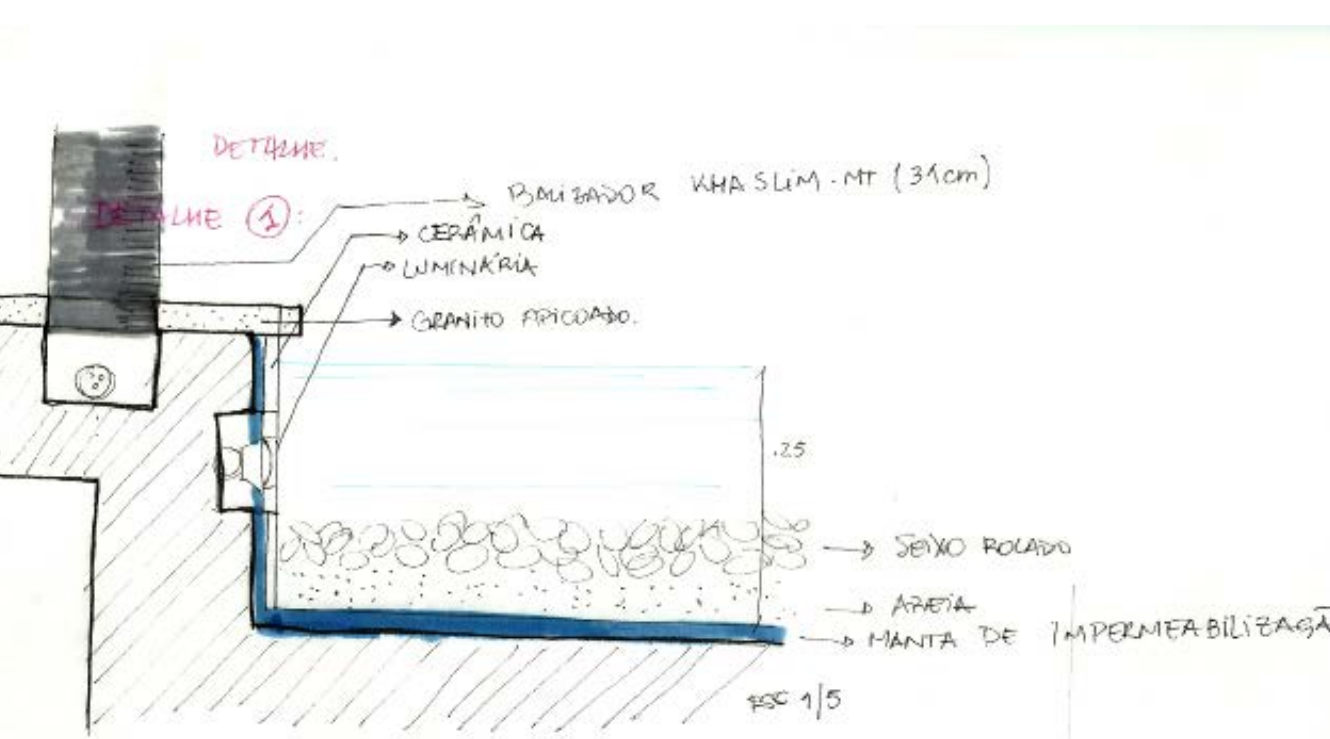 DETALHE.
DETALHE 1:
BALIZADOR KHA SLIM-MT (31cm)
CERÂMICA
LUMINÁRIA
GRANITO APICOADO.
.25
SEIXO ROLADO
AREIA
MANTA DE IMPERMEABILIZAÇÃ
ESC 1/5